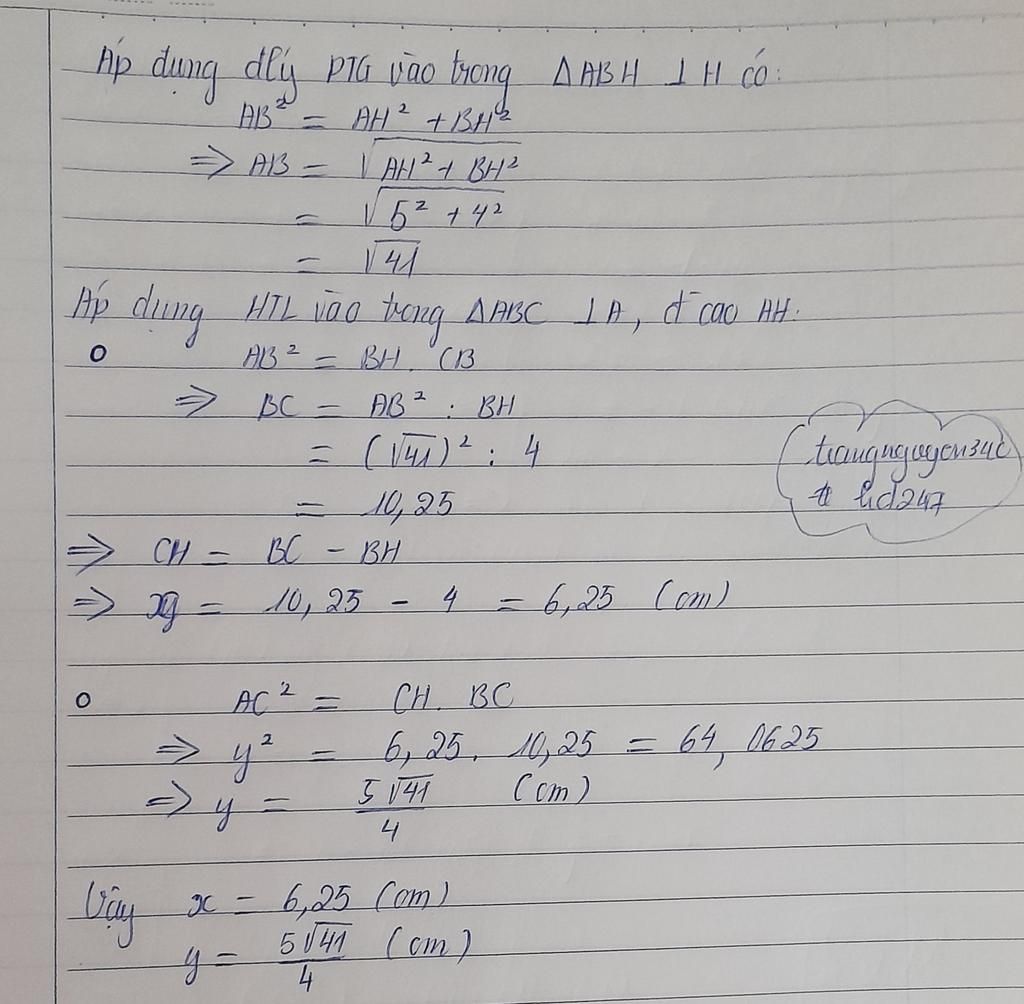 Áp dụng đlý PTG vào trong ΔABH ⊥ H có:
AB² = AH² + BH²
⇒ AB = √(AH² + BH²)
= √(5² + 4²)
= √41
Áp dụng HTL vào trong ΔABC ⊥ A, đ cao AH:
o AB² = BH. CB
⇒ BC = AB² : BH
= (√41)² : 4
= 10,25
trangnguyen34c
hd247
⇒ CH = BC - BH
⇒ x = 10,25 - 4 = 6,25 (cm)
o AC² = CH. BC
⇒ y² = 6,25. 10,25 = 64,0625
⇒ y = 5√41/4 (cm)
Vậy x = 6,25 (cm)
y = 5√41/4 (cm)